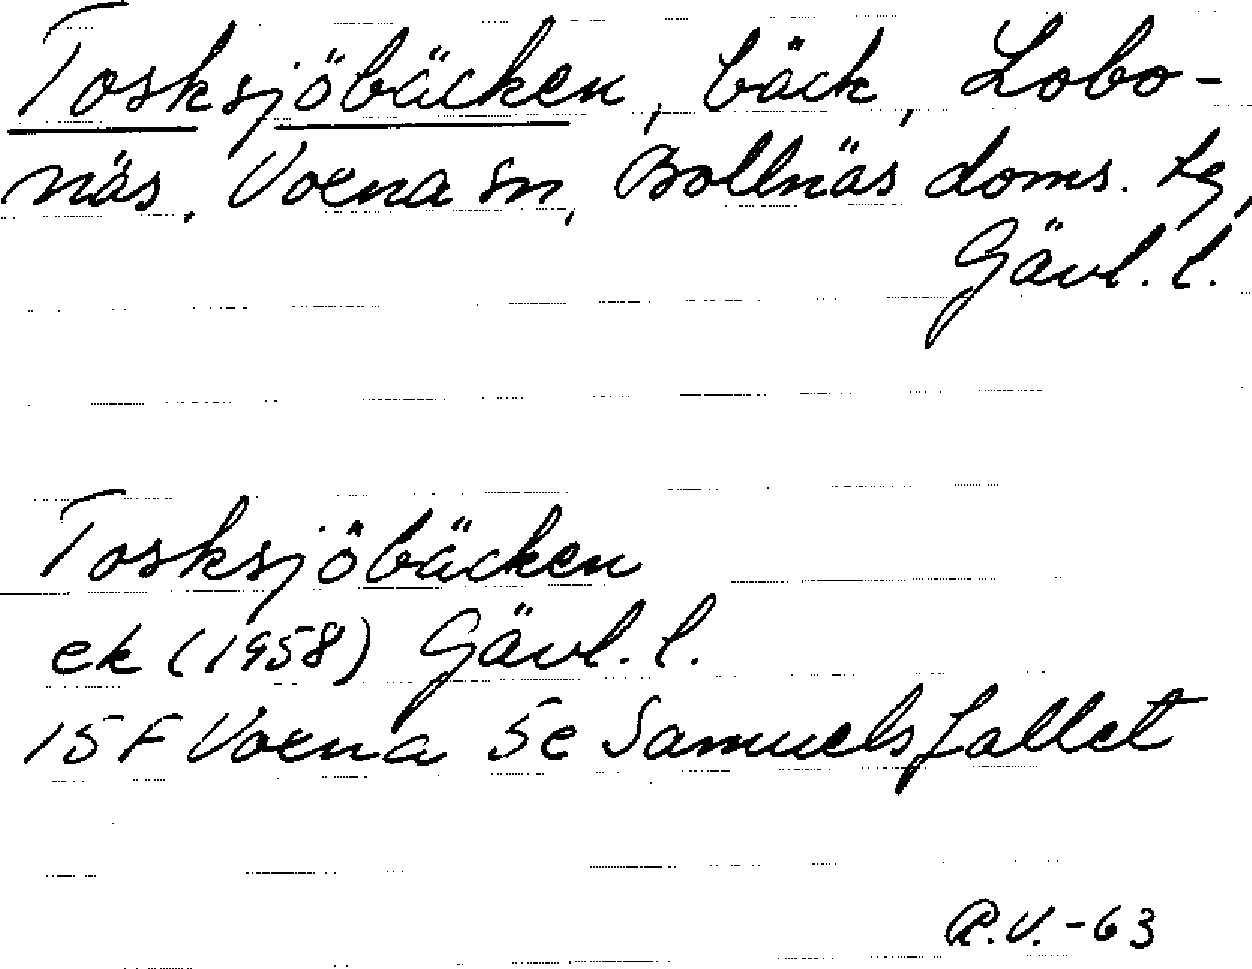 Tosksjöbäcken, bäck, Lobo-
näs, Voxna sn, Bollnäs doms. tg,
Gävl. l.
Tosksjöbäcken
ek (1958) Gävl. l.
15 F Voxna 5e Samuelsfallet
R.V.-63